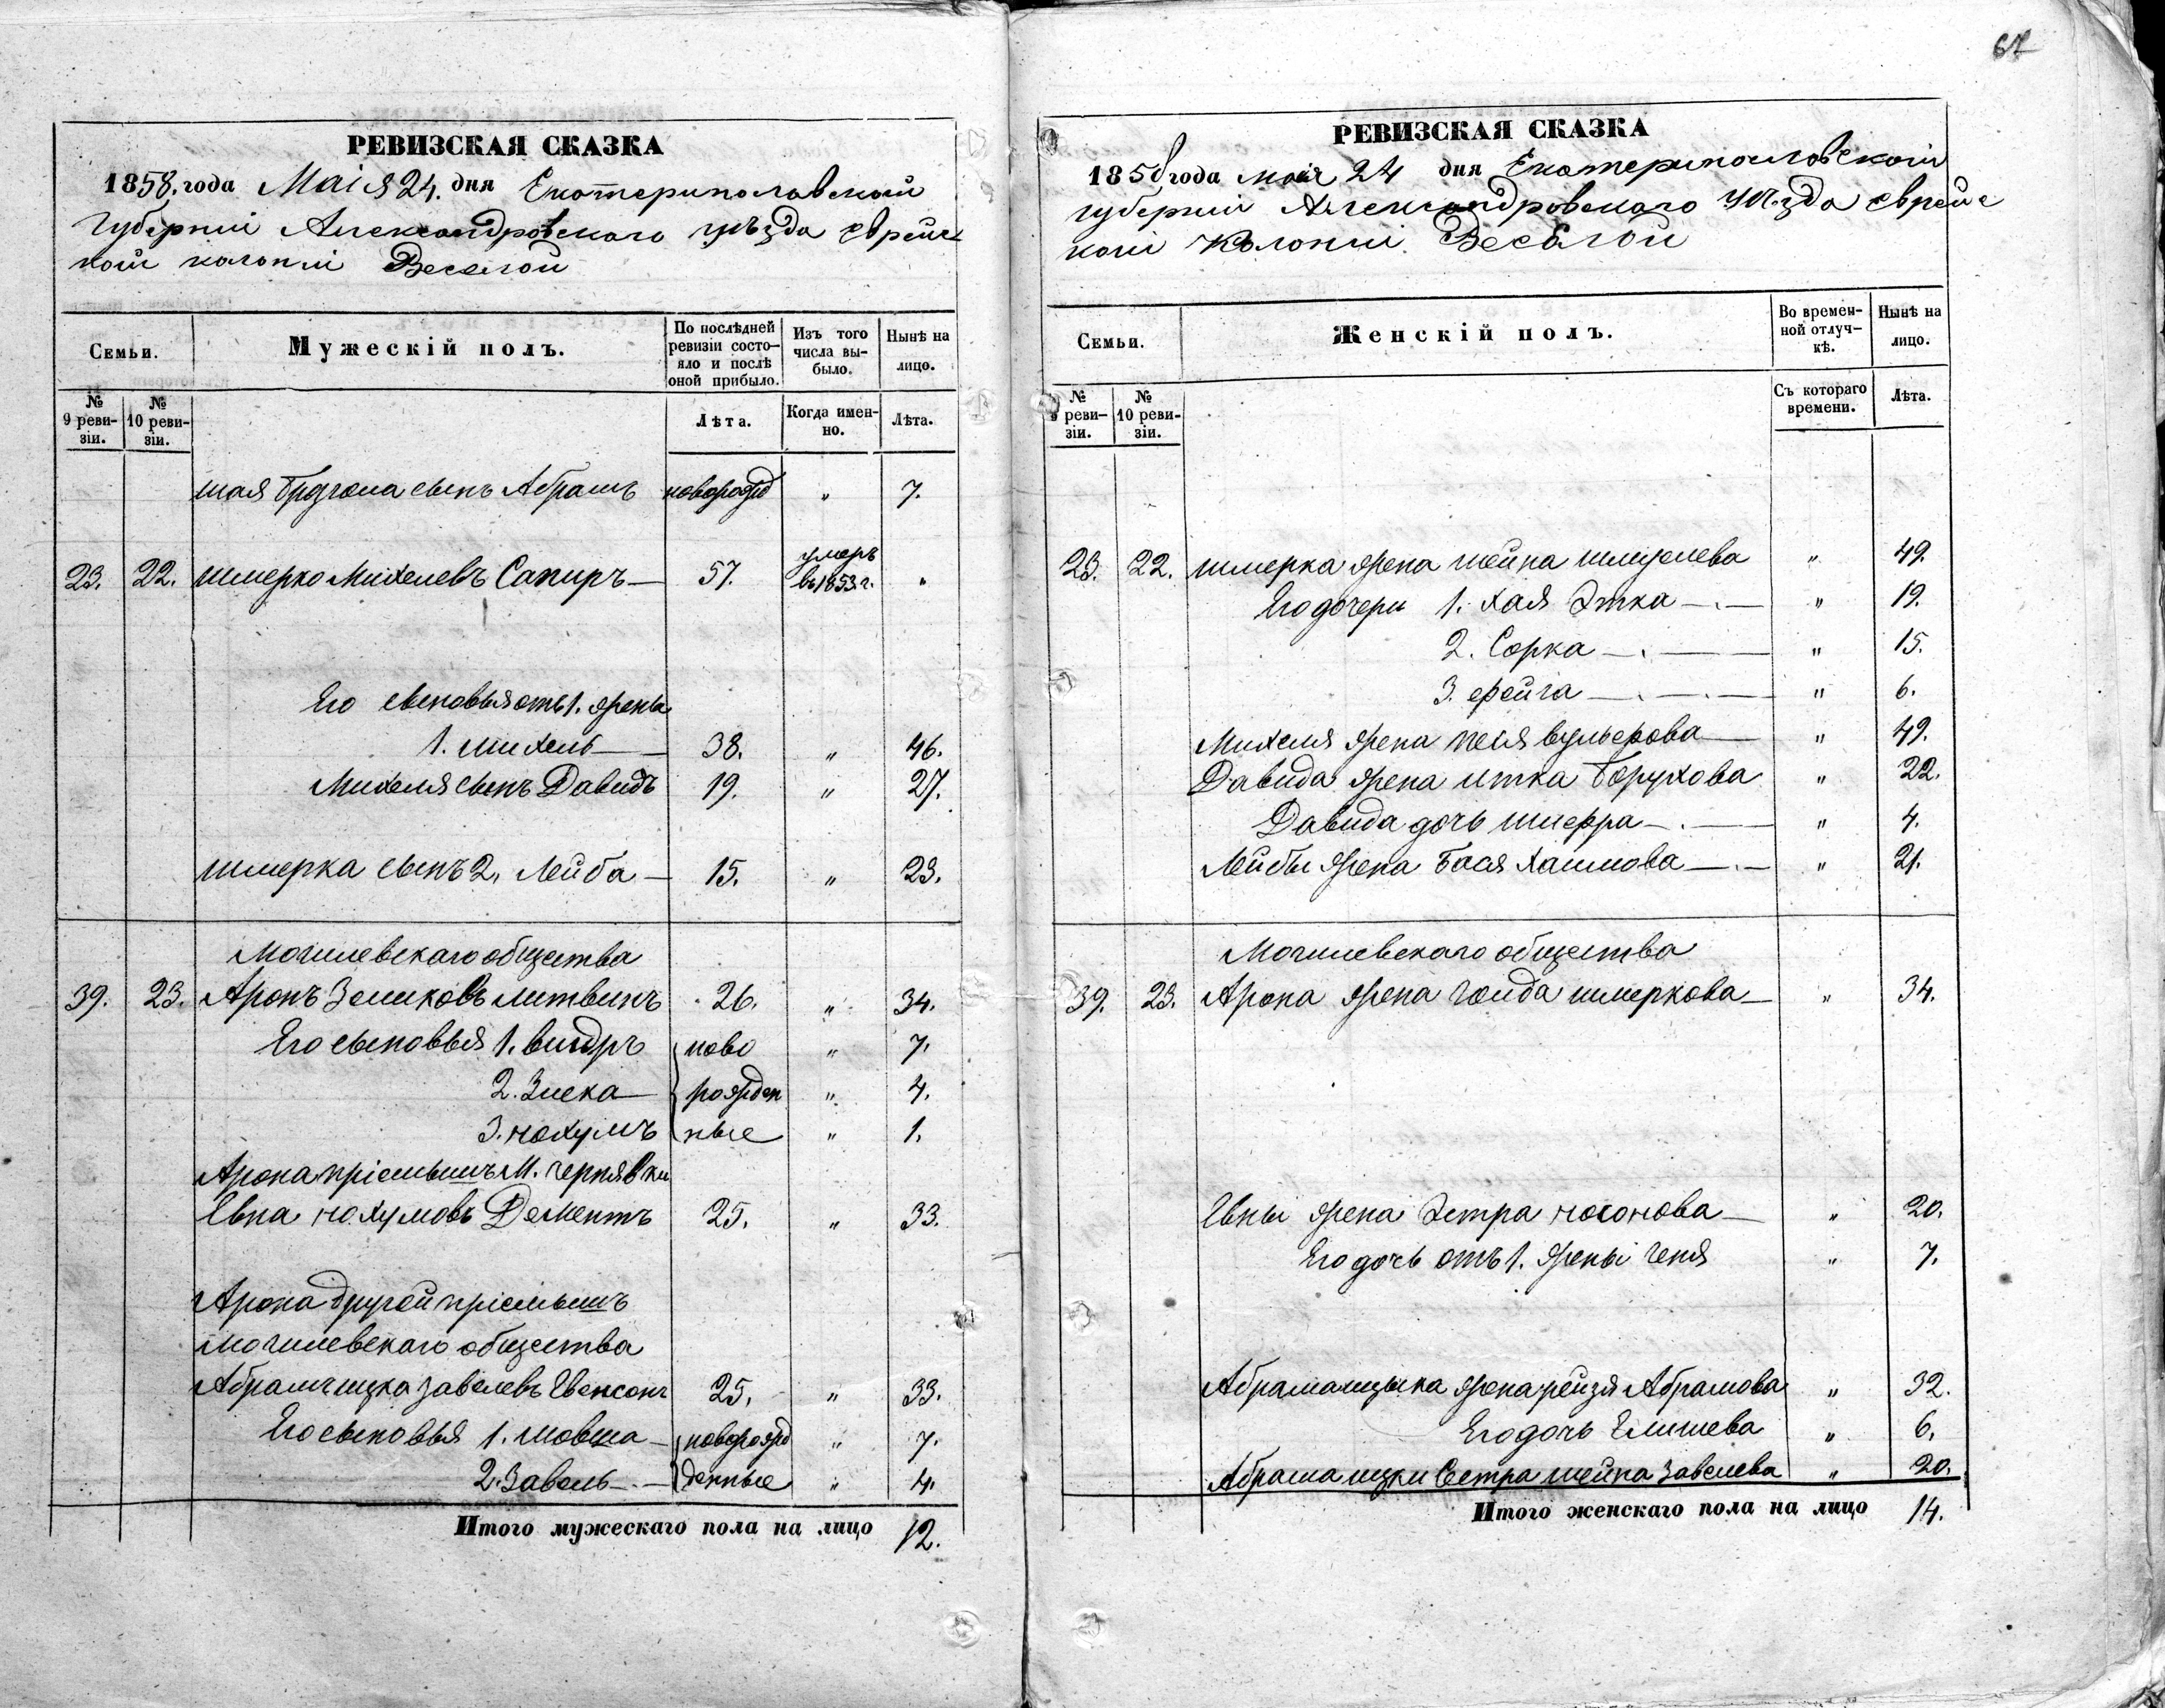 67
РЕВИЗСКАЯ СКАЗКА
1858. года Маія 24. дня Екатеринославской
Губерніи Александровскаго уѣзда еврейс
кой колоніи Веселой
Семьи.
Мужескій полъ.
По послѣдней ревизіи состо-
яло и послѣ
оной прибыло.
Изъ того
числа вы-
было.
Нынѣ на
лицо.
№
9 реви-
зіи.
№
10 реви-
зіи.
Лѣта.
Когда имен-
но.
Лѣта.
сынъ Абрамъ новорожд " 7.
23. 22. Шмерко Михелевъ Сапиръ — 57. умеръ въ 1853 г. "
Его сыновья отъ 1. жены
1. Михель — 38. " 46.
Михеля сынъ Давидъ 19. " 27.
Шмерка сынъ 2. Лейба — 15. " 23.
Могилевскаго общества
39. 23. Аронъ Зеликовъ Литвинъ 26. " 34.
Его сыновья 1. ново " 7.
2. Зиска — рожден " 4.
3. Нохумъ ные " 1.
Арона пріемышъ М. Чернявки
Евна Нохумовъ Дементъ 25. " 33.
Арона другой пріемышъ
Могилевскаго общества
Абрамъ Ицка Завелевъ Евенсонъ 25. " 33.
Его сыновья 1. Мовша — новорожд " 7.
2. Завель — денные " 4.
Итого мужескаго пола на лицо 12.
РЕВИЗСКАЯ СКАЗКА
1858 года мая 24 дня Екатеринославской
губерніи Александровскаго уѣзда еврейс
кой Колоніи Веселой
Семьи.
Женскій полъ.
Во времен-
ной отлуч-
кѣ.
Нынѣ на
лицо.
№
9 реви-
зіи.
№
10 реви-
зіи.
Съ котораго
времени.
Лѣта.
23. 22. Шмерка жена Шейна Шмуелева " 49.
Его дочери 1. Хая Этка — " 19.
2. Сорка — " 15.
3. Фейга — " 6.
Михеля жена Песя Вульфова — " 49.
Давида жена Итка Борухова " 22.
Давида дочь Шифра — " 4.
Лейбы жена Бася Хаимова — " 21.
Могилевскаго общества
39. 23. Арона женаГолда Шмеркова — " 34.
Евны жена Эстра Носонова — " 20.
Его дочь отъ 1. жены Геня " 7.
Абрама Ицыка жена Рейзя Абрамова " 32.
Его дочь Елишева " 6.
Абрама Ицки Сестра Шейна Завелева " 20.
Итого женскаго пола на лицо 14.